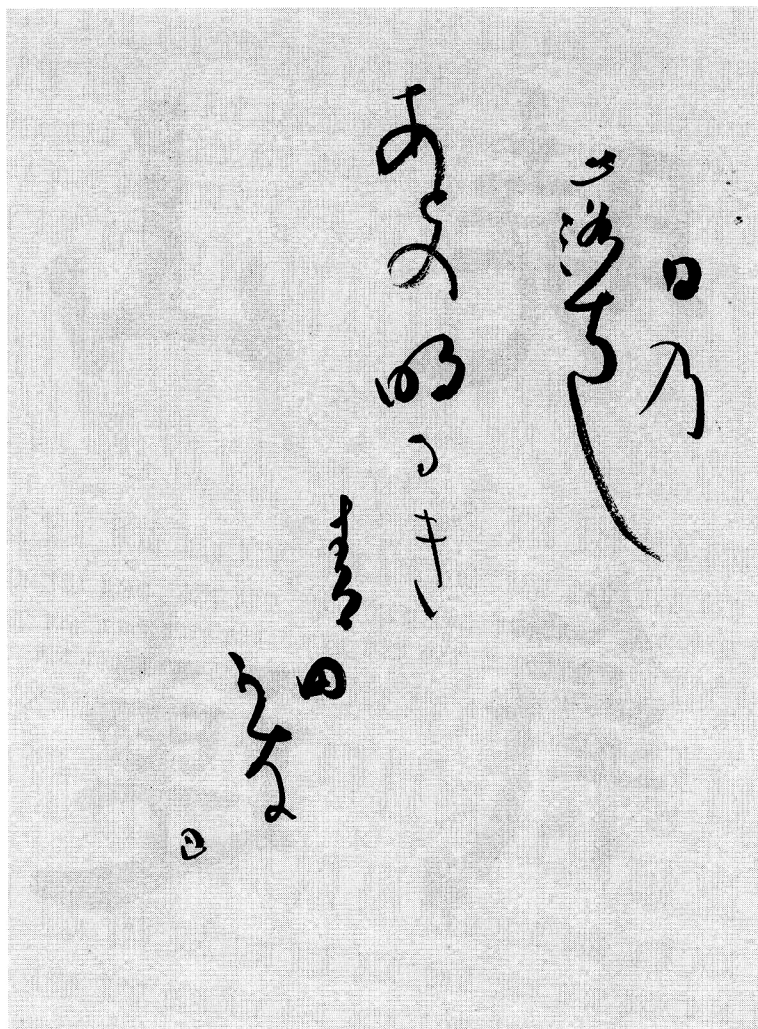 日乃
落ちし
あとの明るき
青田
かな